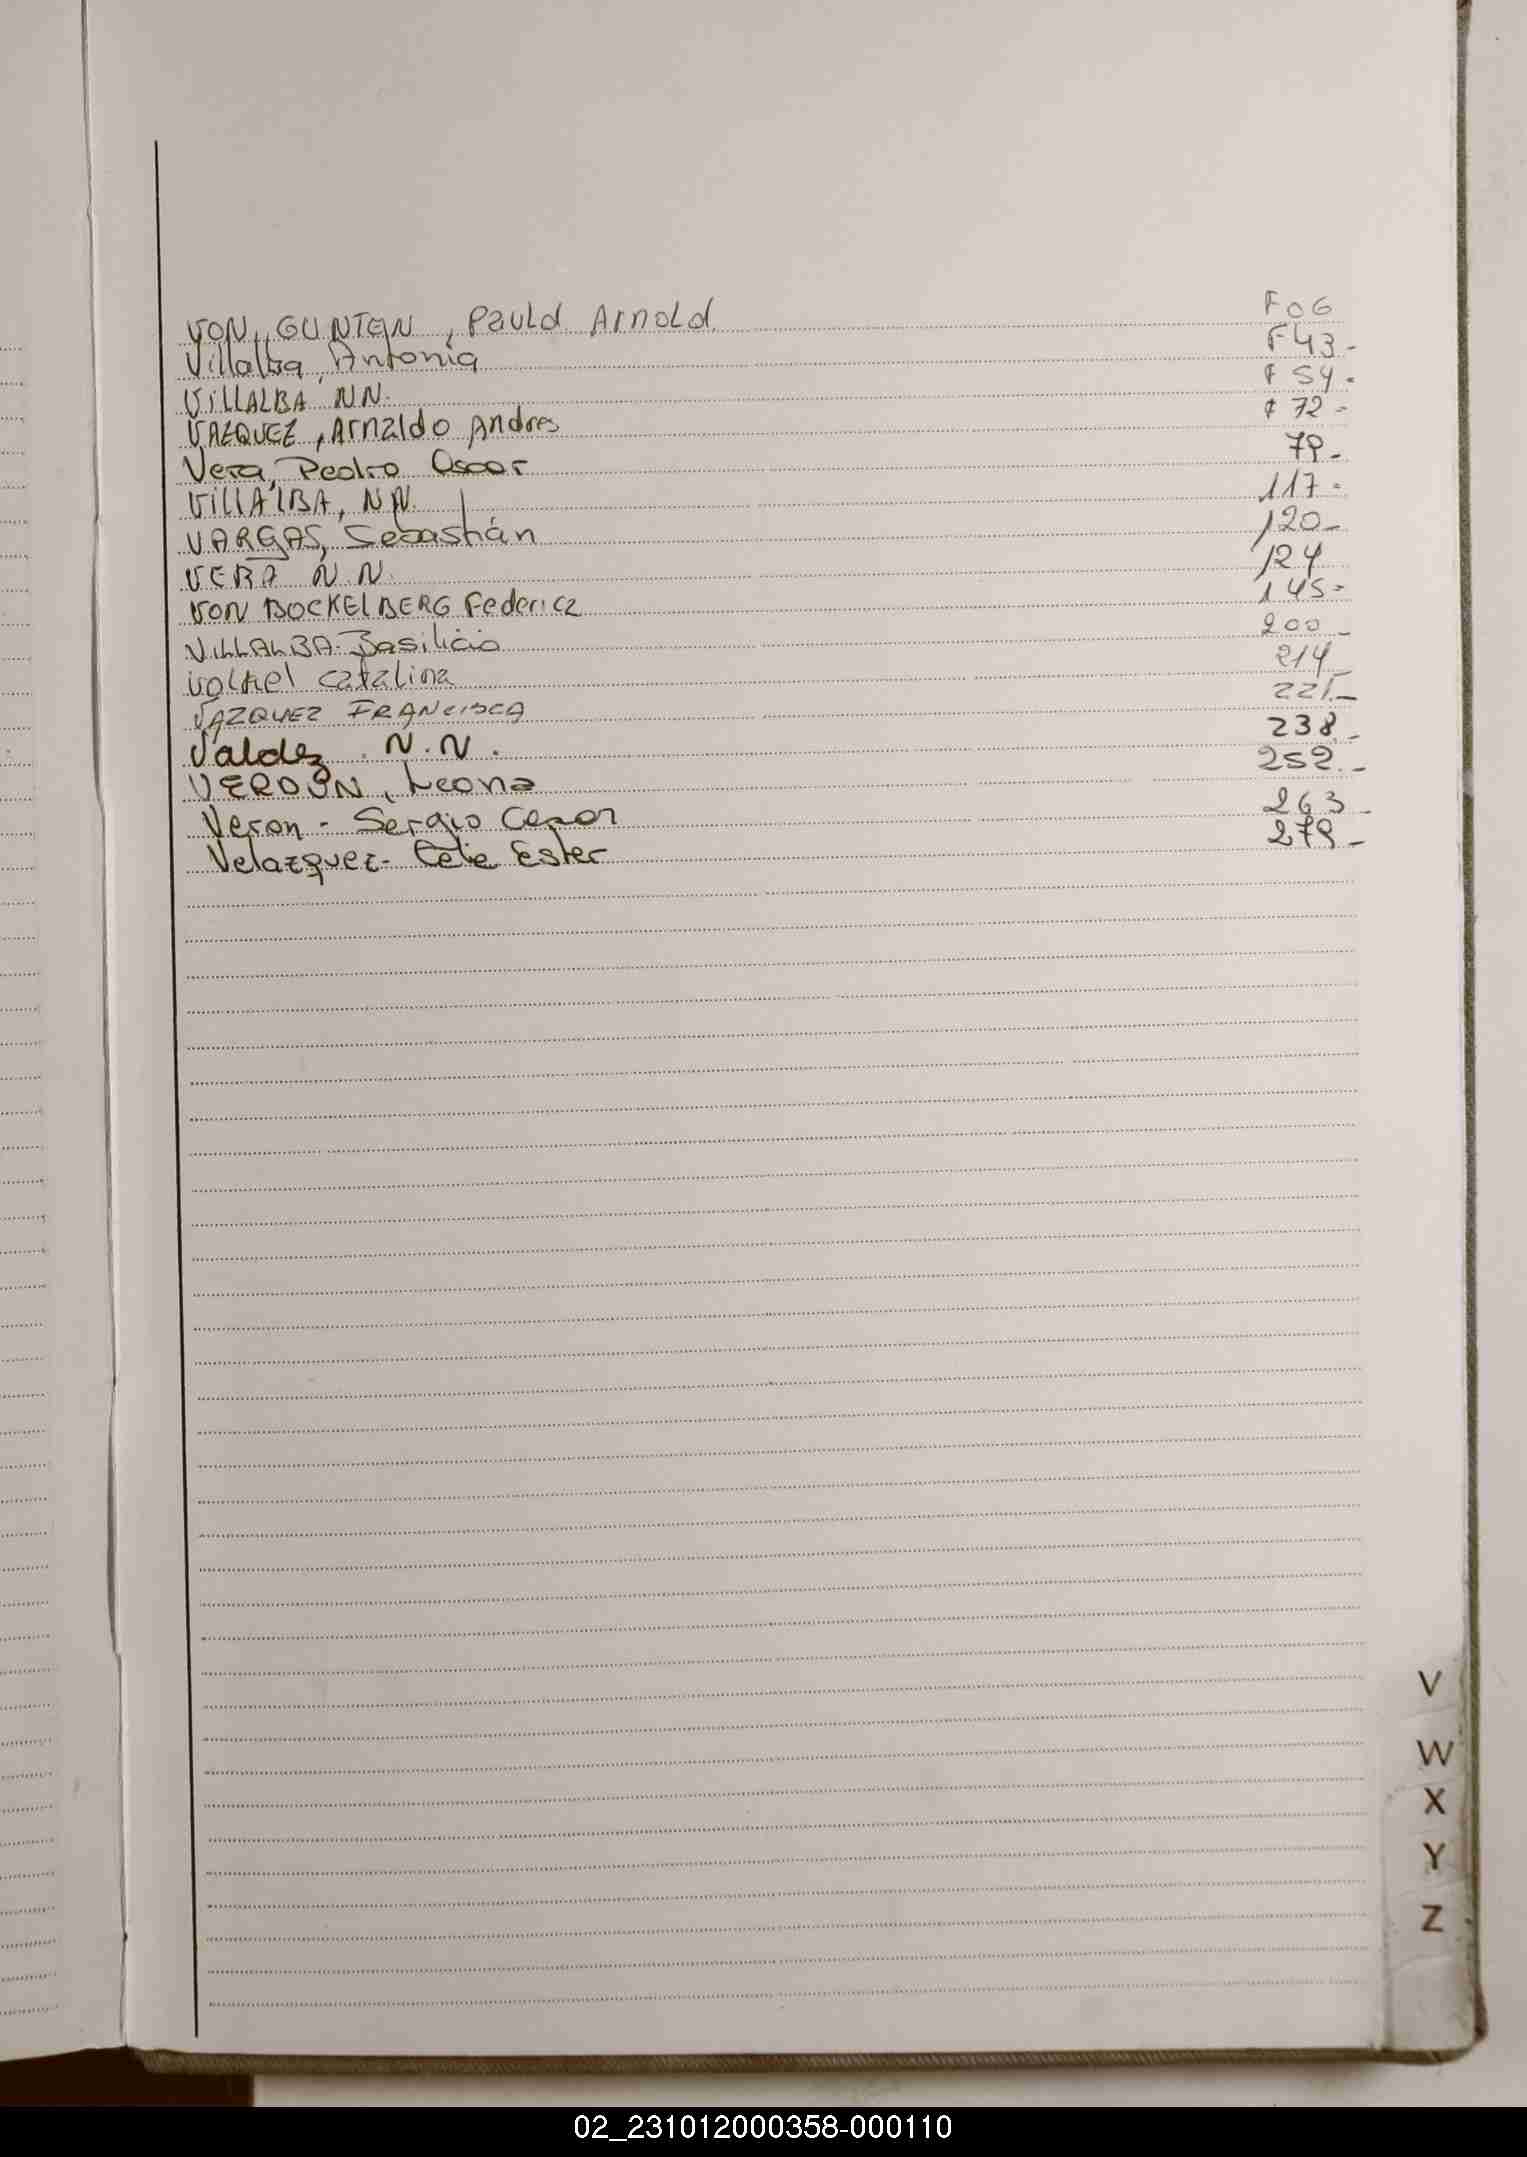 VON GUNTEN, Paulo Arnold F06
Villalba, Antonia F43-
VILLALBA NN. F 54-
VAZQUEZ, Arnaldo Andres F 72-
Vera, Pedro Oscar 79-
VILLALBA, NN. 117-
VARGAS, Sebastián 120-
VERA N.N. 124
VON BOCKELBERG Federico 145-
VILLALBA-Basilicio 200-
Volkel catalina 214-
VAZQUEZ FRANCISCA 221-
Valdez. N.N. 238-
VERDUN, Leona 252-
Veron - Sergio Cesar 263-
Velazquez- Celia Ester 279-
V
W
X
Y
Z
02_231012000358-000110